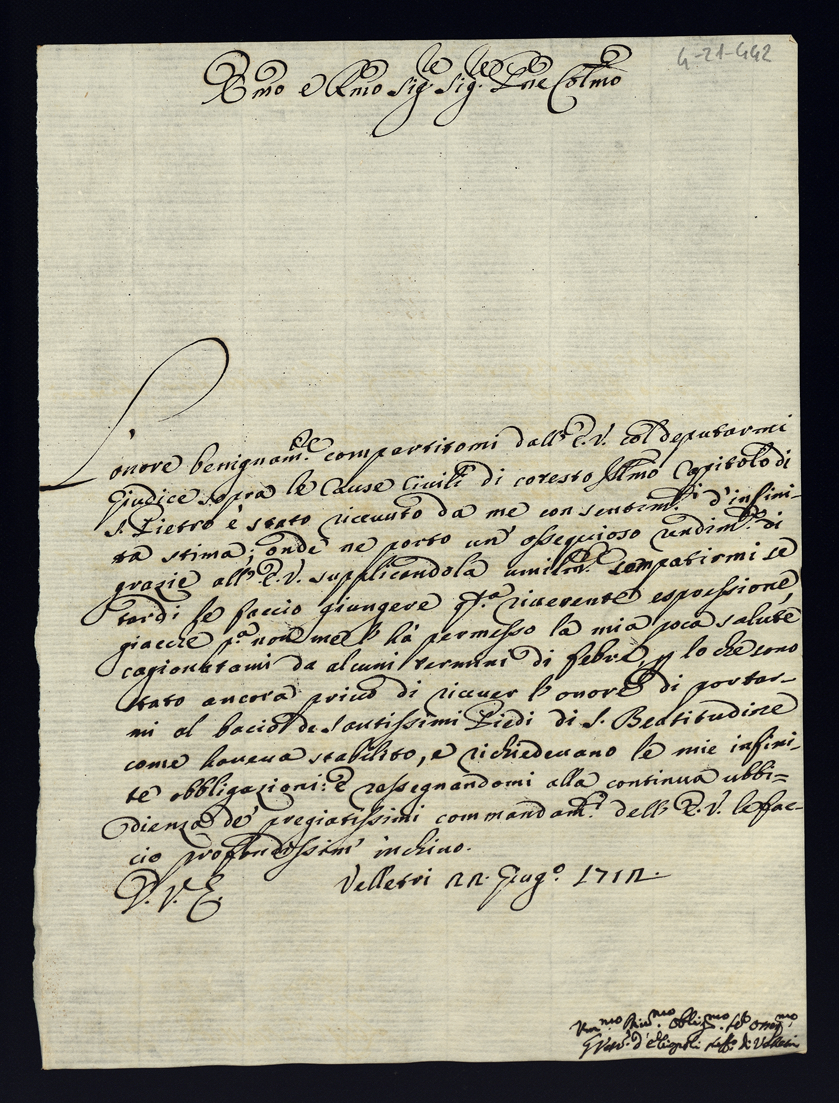 4-21-442
Emo e Rmo Sig.re Sig.re Pne Colmo
L'onore benignam.te compartitomi dall'E.V. col deputarmi
Giudice sopra le Cause Civili di cotesto Illmo Capitolo di
S. Pietro è stato ricevuto da me con sentim.ti d'infini-
ta stima; onde ne porto un' ossequioso rendim.to di
grazie all'E.V. supplicandola umilm.te compatirmi se
tardi le faccio giungere q.ta riverente espressione,
giacche p.a non me l'hà permesso la mia poca salute
cagionatami da alcuni termini di febre, p lo che sono
stato ancora privo di ricever l'onore di portar-
mi al bacio de Santissimi Piedi di S. Beatitudine
come haveva stabilito, e richiedevano le mie infini-
te obbligazioni: E rassegnandomi alla continua ubbi-
dienza de' pregiatissimi commandam.ti dell'E.V. le fac-
cio profondissim' inchino.
D.V.E. Velletri 22. Giug.o 1712.
obblig.mo
di Velletri